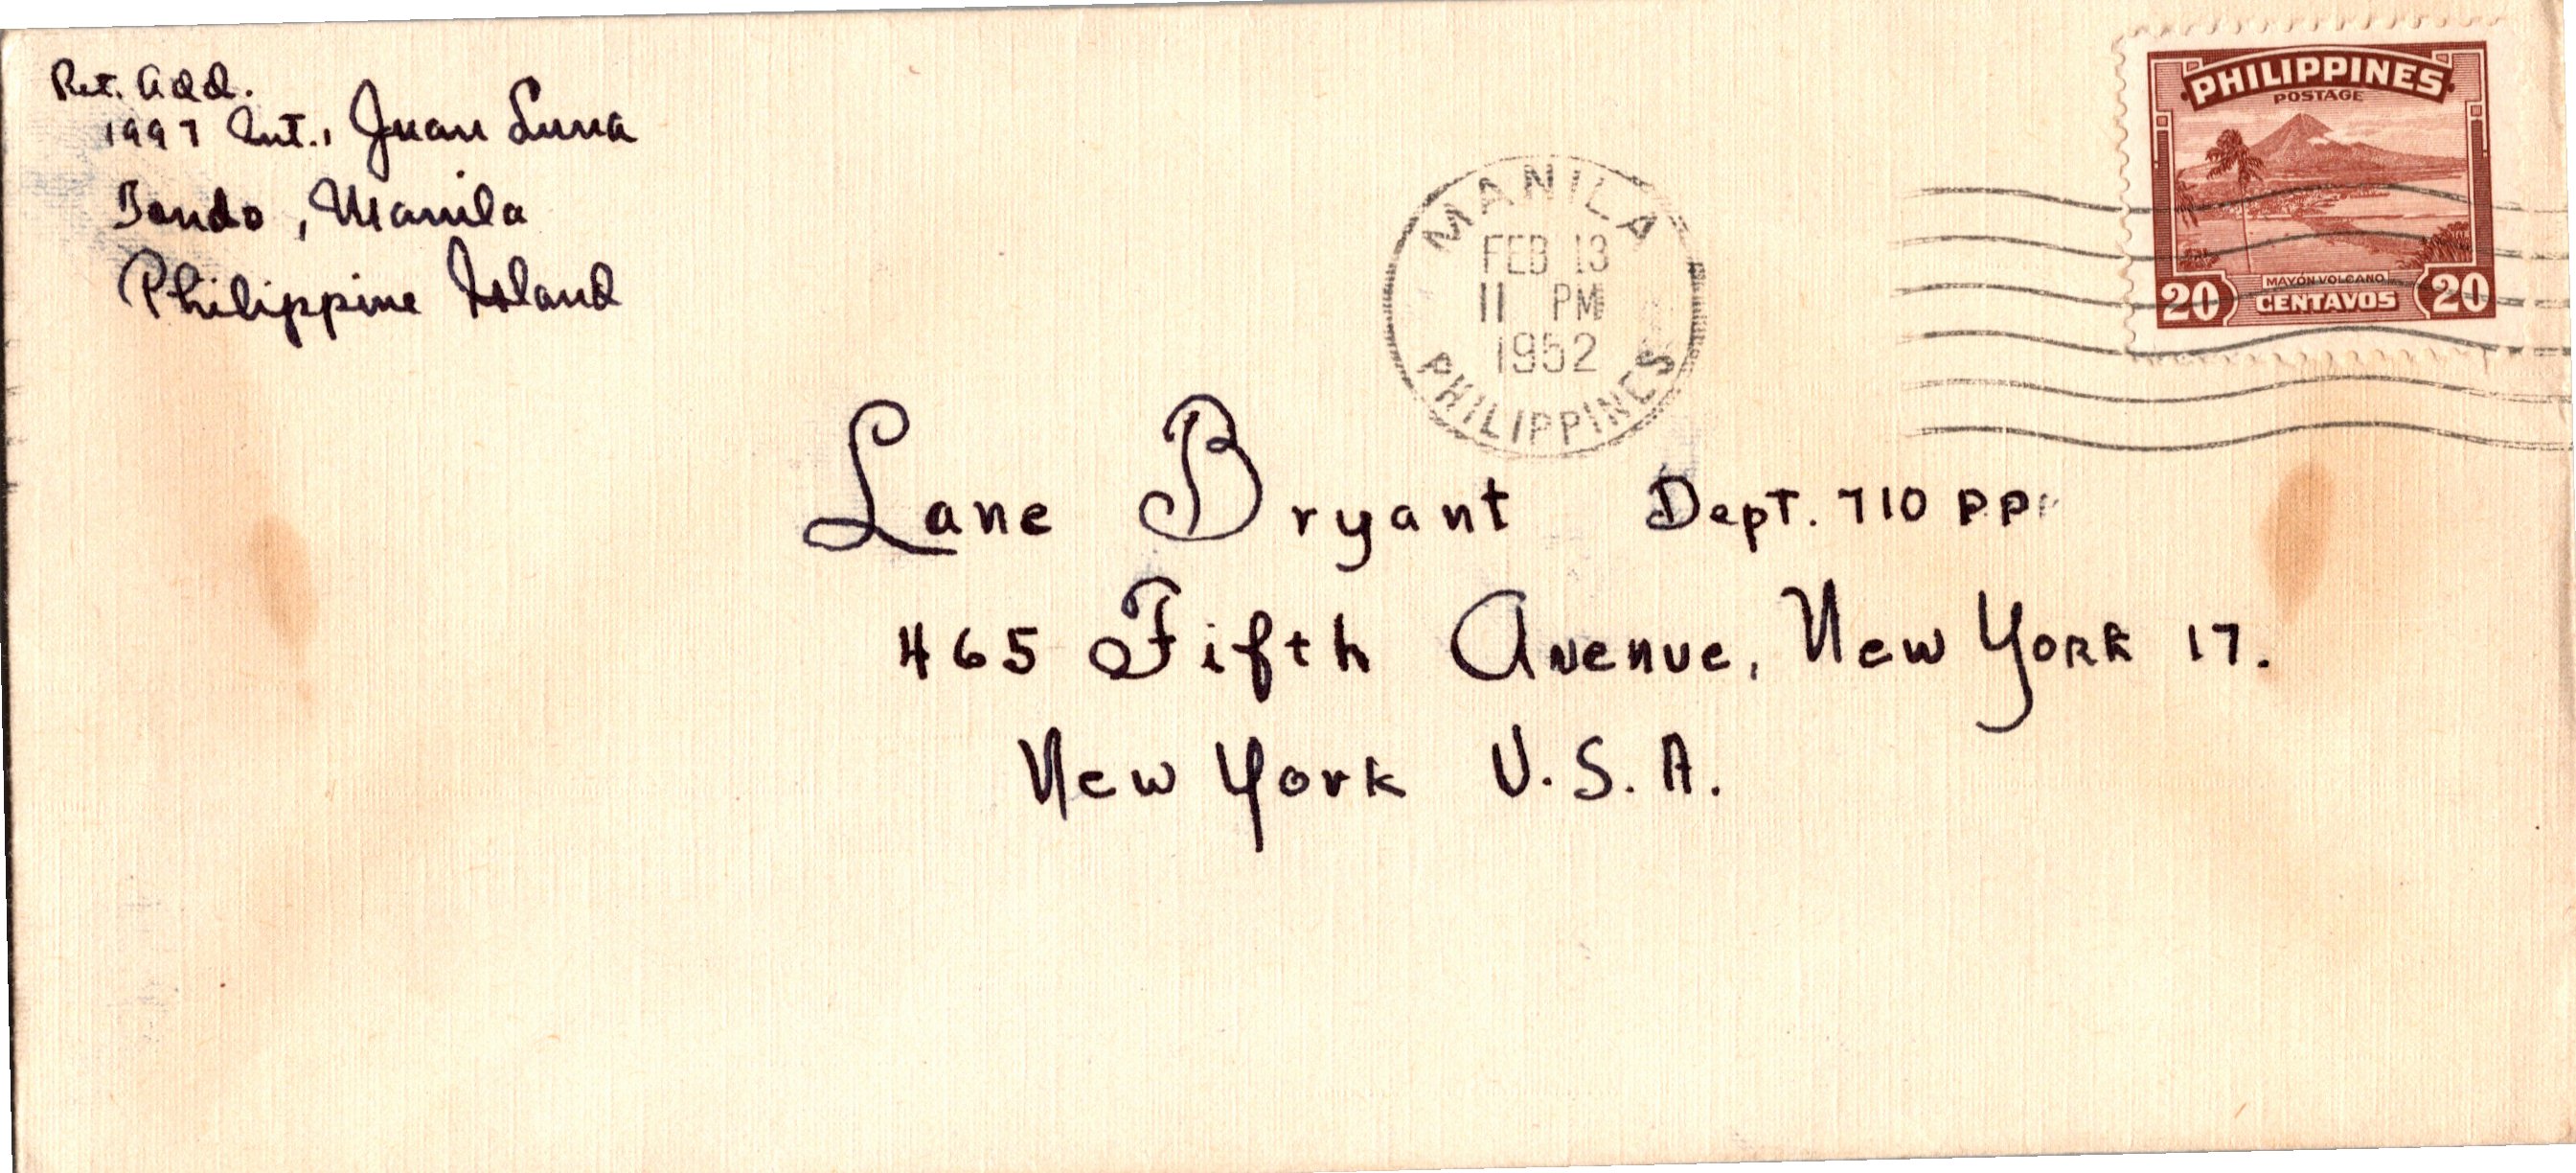 Ret. Add.
1997 Int., Juan Luna
Tondo, Manila
Philippine Island
PHILIPPINES
POSTAGE
MAYÓN VOLCANO
20 CENTAVOS 20
MANILA
FEB 13
11 PM
1952
PHILIPPINES
Lane Bryant Dept. 710 PP
465 Fifth Avenue, New York 17.
New York U.S.A.